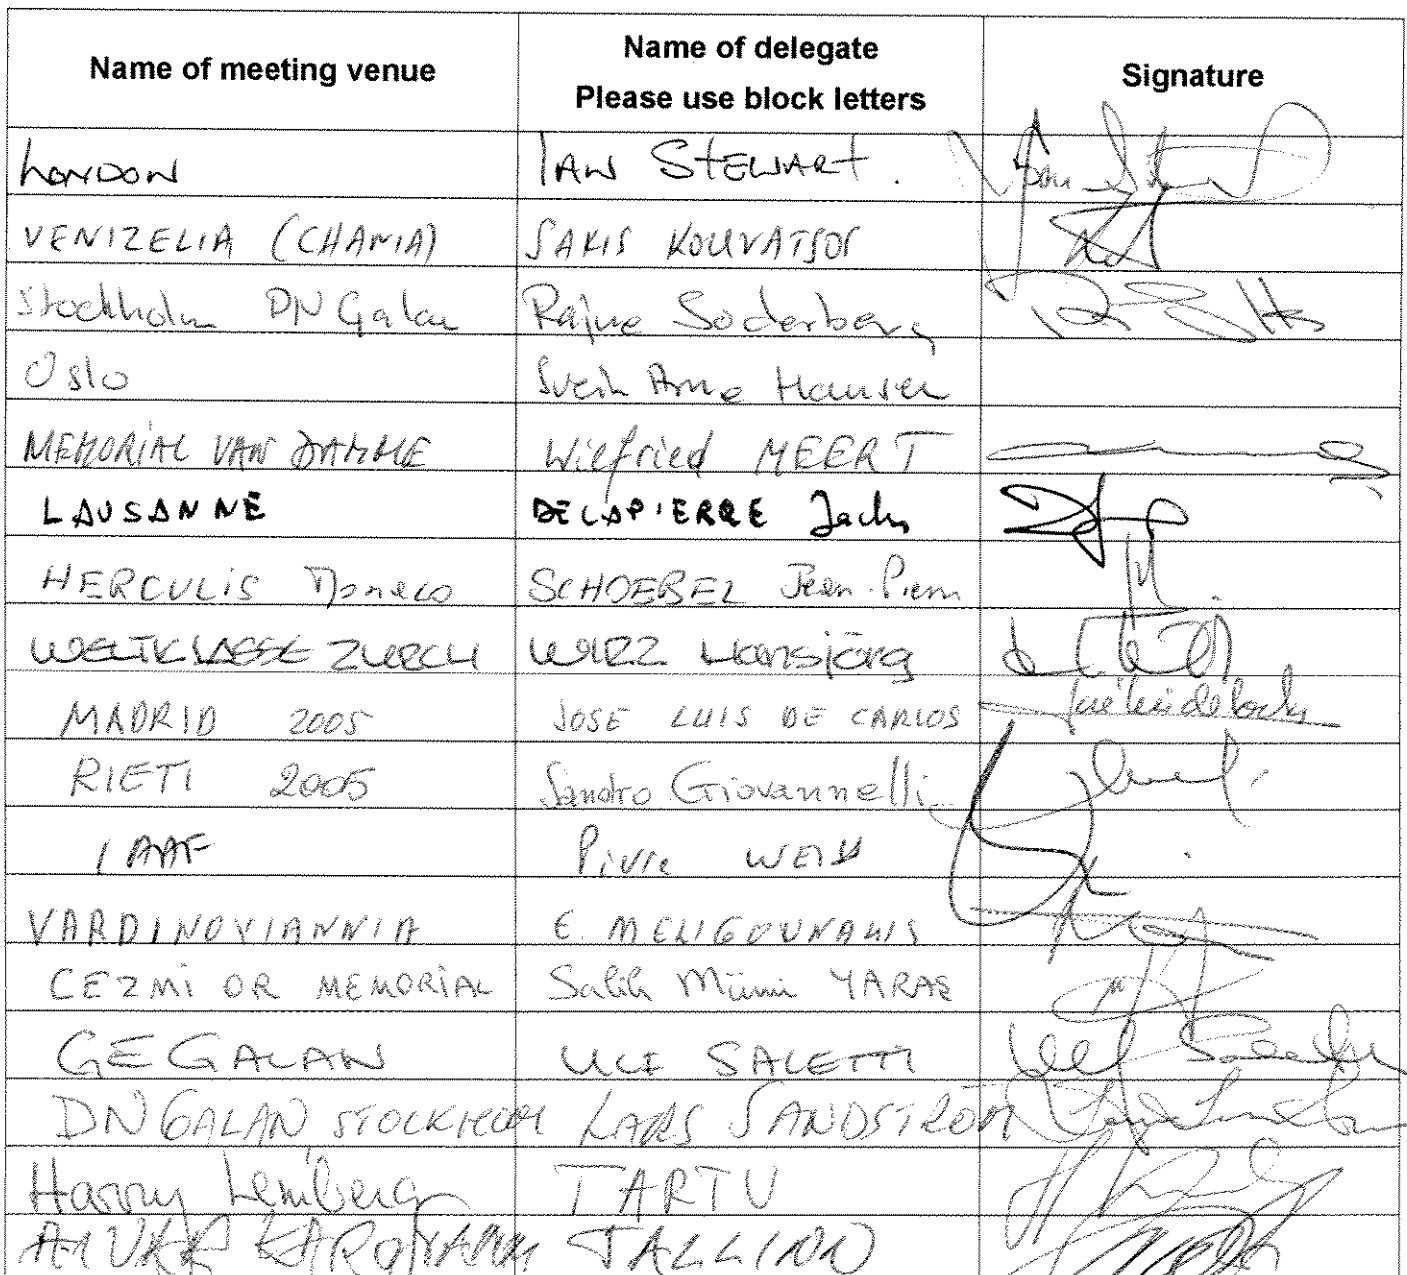 Name of meeting venue
Name of delegate
Please use block letters
Signature
LONDON IAN STEWART.
VENIZELIA (CHANIA) SAKIS KOUVATSOS
Stockholm DN Galan Rajne Soderberg
Oslo Svein Arne Hansen
MEMORIAL VAN DAMME Wilfried MEERT
LAUSANNE DELAPIERRE Jacky
HERCULIS Monaco SCHOEBEL Jean-Pierre
WELTKLASSE ZURICH WIRZ Hansjörg
MADRID 2005 JOSE LUIS DE CARLOS
RIETI 2005 Sandro Giovannelli
IAAF Pierre WEISS
VARDINOYIANNIA E. MELIGOUNAKIS
CEZMi OR MEMORiAL Salih Münir YARAŞ
GEGALAN ULF SALETTI
DN GALAN STOCKHOLM LARS SANDSTRÖM
Harry Lemberg TARTU
TALLINN